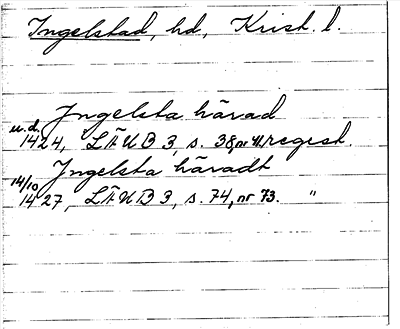 Ingelstad, hd, Krist. l.
Ingelsta härad
u.d. 1424, LÄUB 3, s. 38, nr 41, regist.
Ingelsta häradt
14/10 1427, LÄUB 3, s. 74, nr 73. "